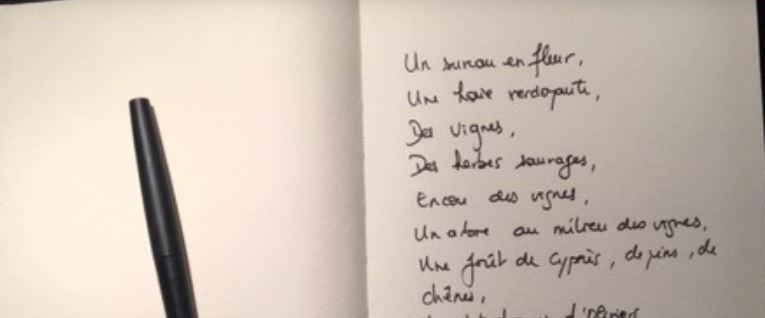 Un sureau en fleur,
Une haie verdoyante,
Des vignes,
Des herbes sauvages,
Encore des vignes,
Un arbre au milieu des vignes,
Une forêt de cyprès, de pins, de
chênes,
d'oliviers